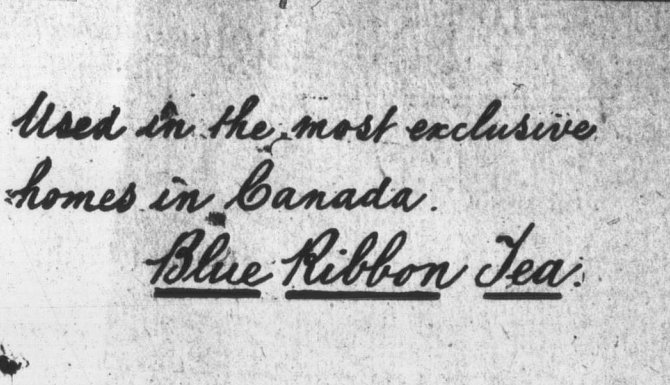 Used in the most exclusive
homes in Canada.
Blue Ribbon Tea.